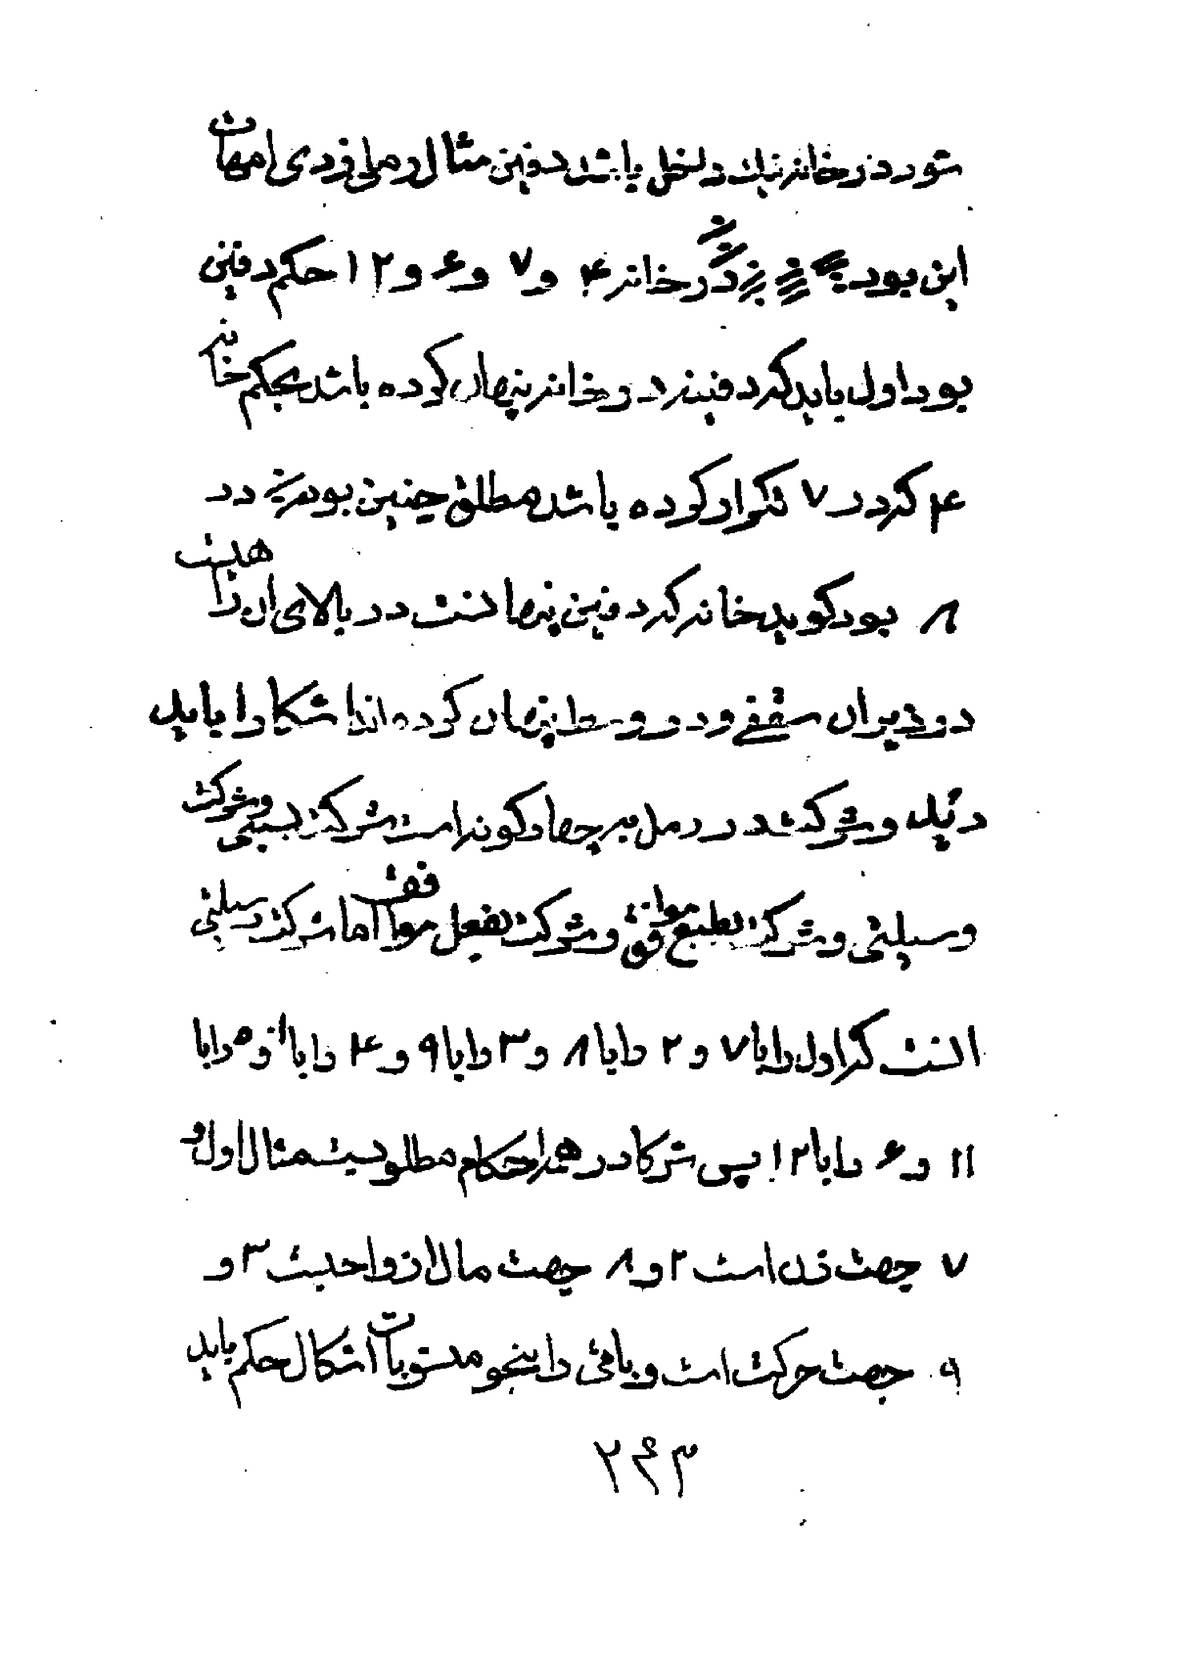 شود در خانه نیک داخل باشد دفین مثال رملی زدی امهات
این بود در خانه ۴ و ۷ و ۶ و ۱۲ حکم دفین
بود اول باید که دفینه در خانه پنهان کرده باشد بحکم خانه
۴ که در ۷ تکرار کرده باشد مطلق چنین بود در
۸ بود گوید خانه که دفین پنها نست در بالای ان را هیت
در زیر ان سقفی و در وسط پنهان کرده اند اشکا را باید
دید و شرکت در رمل بر چهار گونه است شرکت بسیتی و شرکت
وسیلتی و شرکت بطبع موافق و شرکت بفعل موافق اما شرکت وسیلتی
انست که اول را با ۷ و ۲ را با ۸ و ۳ را با ۹ و ۴ را با ۱۰ و ۵ را با
۱۱ و ۶ را با ۱۲ پس شرکا در همه احکام مطلوبست مثال اول و
۷ جهت زن است ۲ و ۸ جهت مال ازواجیت ۳ و
۹ جهت حرکت است و باقی را بنحو منسوبات اشکال حکم باید
۲۶۳